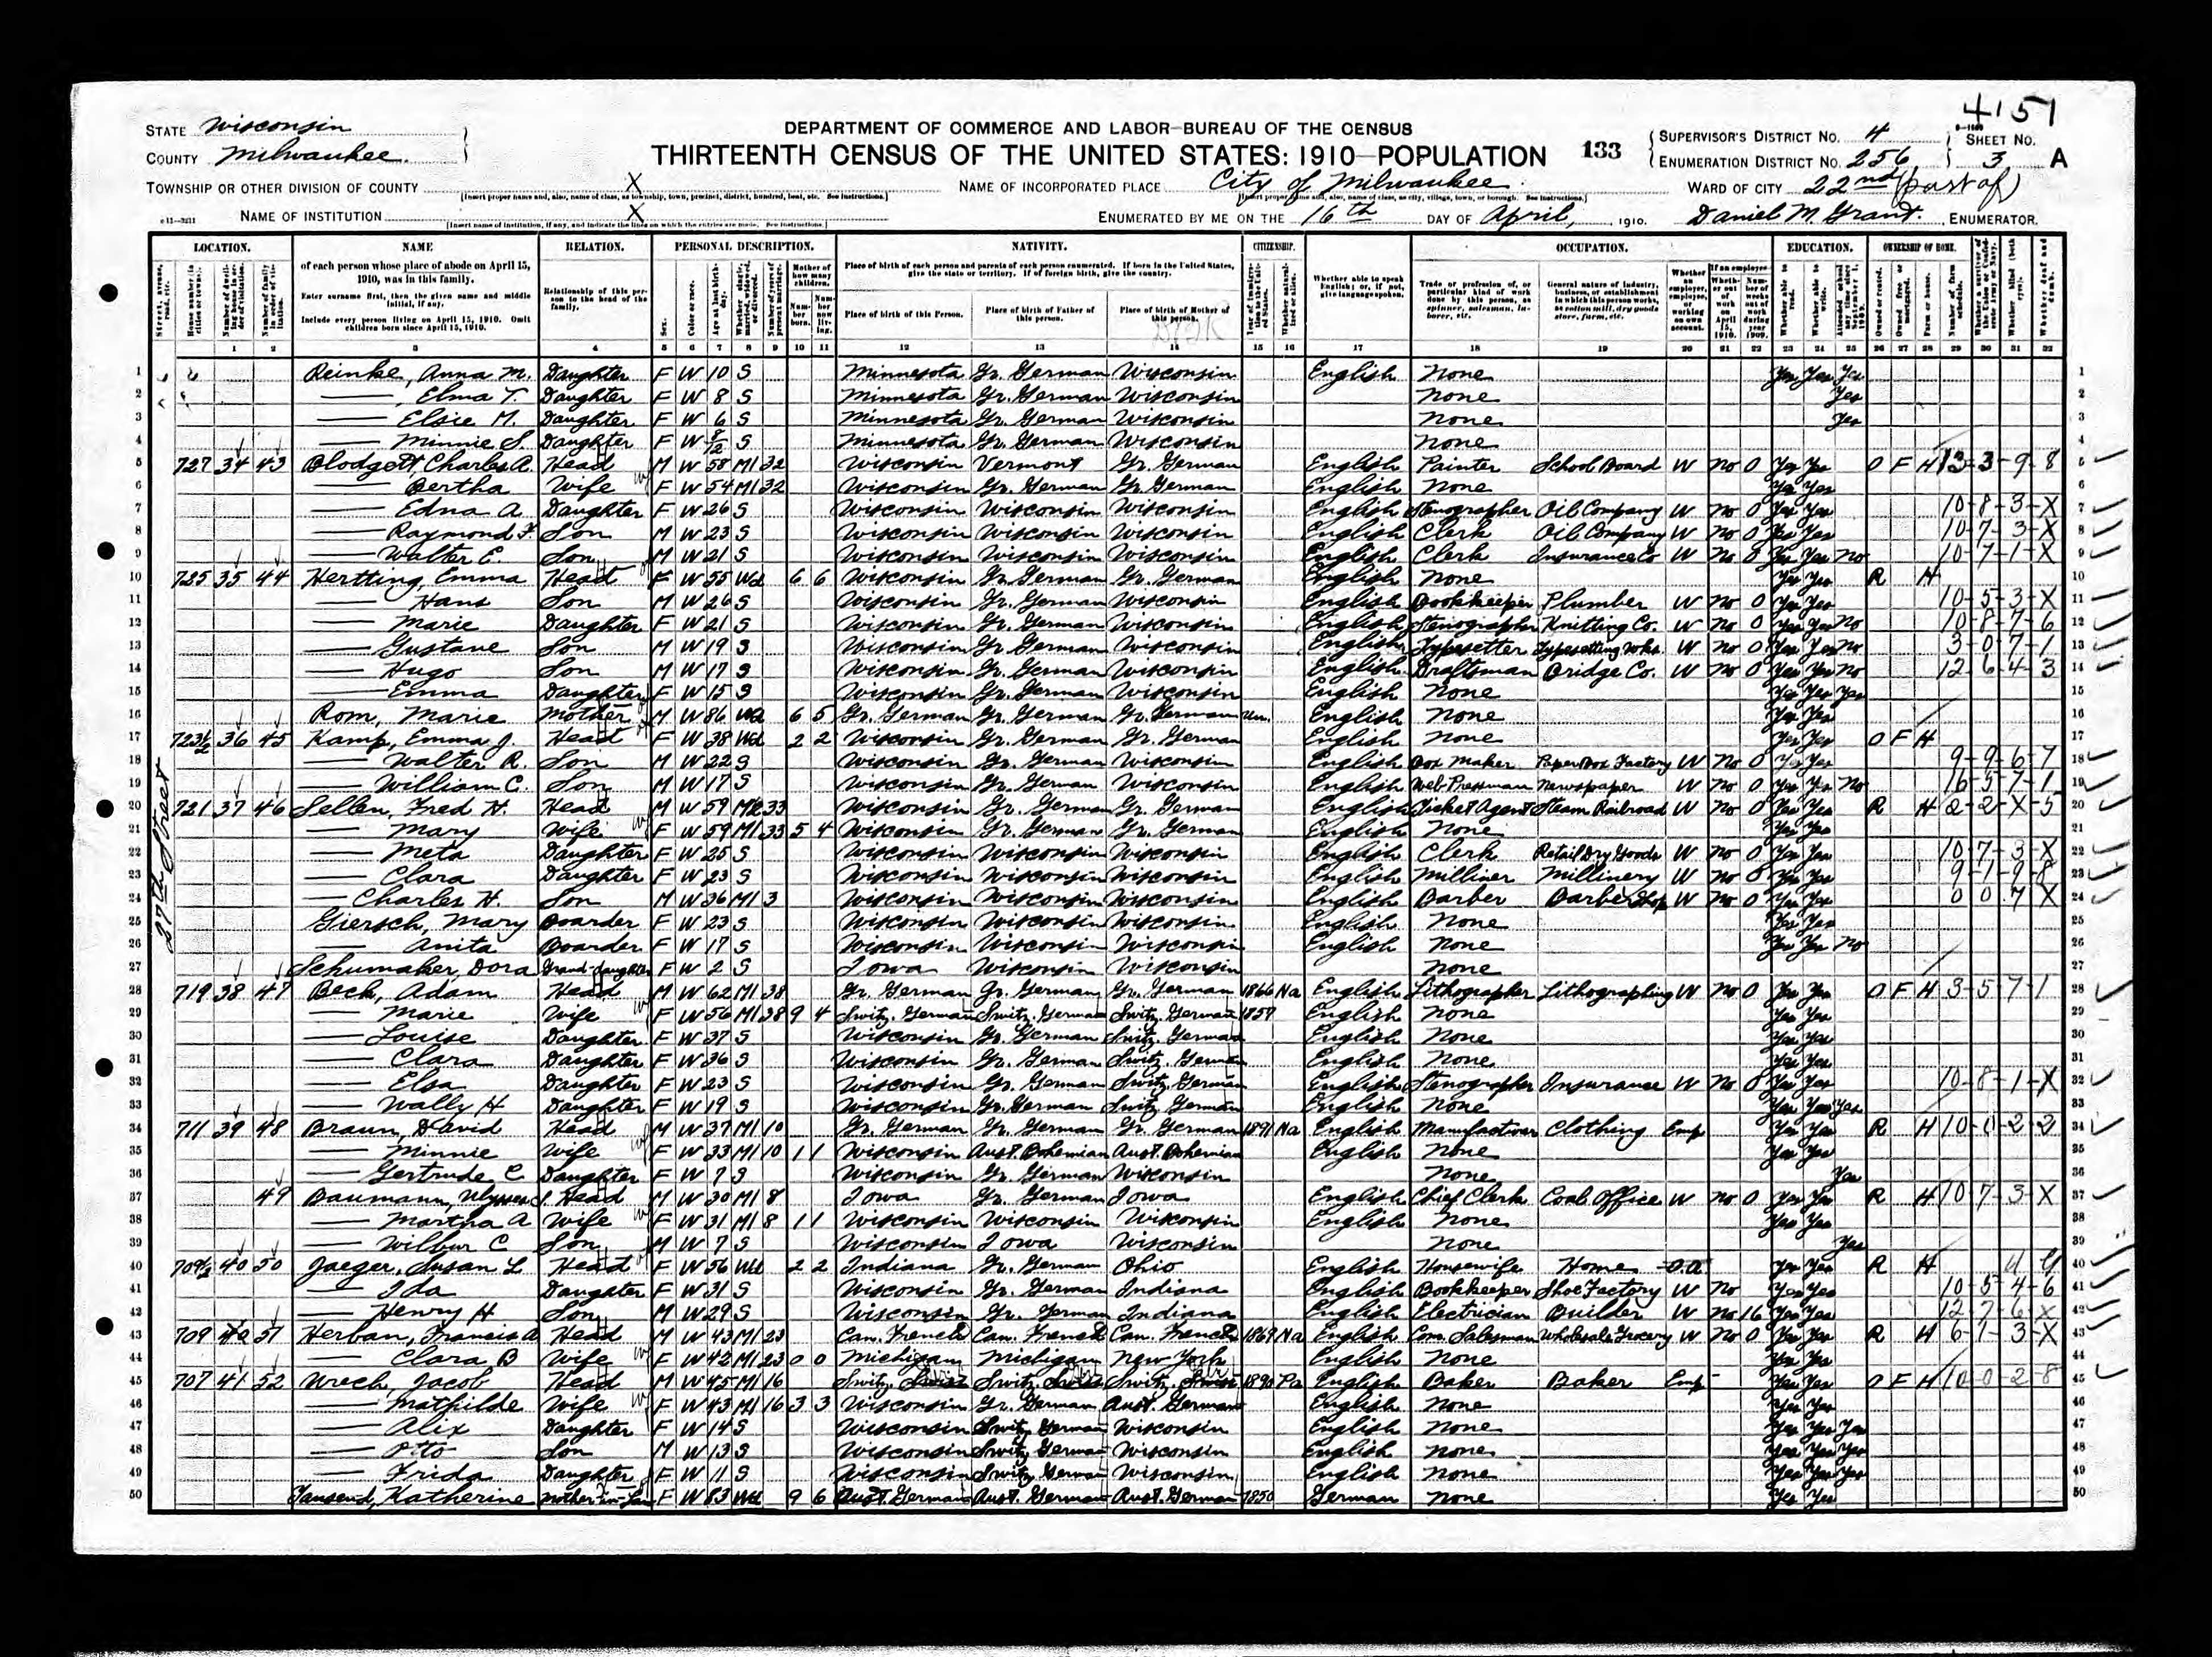 4151
STATE Wisconsin
COUNTY Milwaukee
DEPARTMENT OF COMMERCE AND LABOR—BUREAU OF THE CENSUS
THIRTEENTH CENSUS OF THE UNITED STATES: 1910—POPULATION
133
SUPERVISOR'S DISTRICT No. 4
ENUMERATION DISTRICT No. 256
SHEET No. 3 A
TOWNSHIP OR OTHER DIVISION OF COUNTY X
NAME OF INCORPORATED PLACE City of Milwaukee
WARD OF CITY 22nd (part of)
NAME OF INSTITUTION X
ENUMERATED BY ME ON THE 16th DAY OF April, 1910. Daniel M. Grant. ENUMERATOR.
LOCATION. NAME RELATION. PERSONAL DESCRIPTION. NATIVITY. CITIZENSHIP. OCCUPATION. EDUCATION. OWNERSHIP OF HOME.
of each person whose place of abode on April 15, 1910, was in this family.
Enter surname first, then the given name and middle initial, if any.
Include every person living on April 15, 1910. Omit children born since April 15, 1910.
Relationship of this person to the head of the family.
Place of birth of each person and parents of each person enumerated. If born in the United States, give the state or territory. If of foreign birth, give the country.
Place of birth of this Person. Place of birth of Father of this person. Place of birth of Mother of this person.
Whether able to speak English; or, if not, give language spoken.
1 2 3 4 5 6 7 8 9 10 11 12 13 14 15 16 17 18 19 20 21 22 23 24 25 26 27 28 29 30 31 32
27th Street
1 Reinke, Anna M. Daughter F W 10 S Minnesota Gr. German Wisconsin English None Yes Yes Yes 1
2 — Elma T. Daughter F W 8 S Minnesota Gr. German Wisconsin None Yes 2
3 — Elsie M. Daughter F W 6 S Minnesota Gr. German Wisconsin None Yes 3
4 — Minnie S. Daughter F W S Minnesota Gr. German Wisconsin None 4
5 727 34 43 Blodgett Charles A. Head M W 58 M1 32 Wisconsin Vermont Gr. German English Painter School Board W No 0 Yes Yes O F H 13-3-9-8 5
6 — Bertha Wife F W 54 M1 32 Wisconsin Gr. German Gr. German English None Yes Yes 6
7 — Edna A. Daughter F W 26 S Wisconsin Wisconsin Wisconsin English Stenographer Oil Company W No 0 Yes Yes 10-8-3-X 7
8 — Raymond F. Son M W 23 S Wisconsin Wisconsin Wisconsin English Clerk Oil Company W No 0 Yes Yes 10-7-3-X 8
9 — Walter E. Son M W 21 S Wisconsin Wisconsin Wisconsin English Clerk Insurance Co W No 0 Yes Yes No 10-7-1-X 9
10 725 35 44 Hertting, Emma Head F W 55 Wd 6 6 Wisconsin Gr. German Gr. German English None Yes Yes R H 10
11 — Hans Son M W 26 S Wisconsin Gr. German Wisconsin English Bookkeeper Plumber W No 0 Yes Yes 10-5-3-X 11
12 — Marie Daughter F W 21 S Wisconsin Gr. German Wisconsin English Stenographer Knitting Co. W No 0 Yes Yes No 10-8-7-6 12
13 — Gustave Son M W 19 S Wisconsin Gr. German Wisconsin English Typesetter Typesetting Wks. W No 0 Yes Yes No 3-0-7-1 13
14 — Hugo Son M W 17 S Wisconsin Gr. German Wisconsin English Draftsman Bridge Co. W No 0 Yes Yes No 12-6-4-3 14
15 — Emma Daughter F W 15 S Wisconsin Gr. German Wisconsin English None Yes Yes Yes 15
16 Rom, Marie Mother M W 86 Wd 6 5 Gr. German Gr. German Gr. German Un. English None Yes Yes 16
17 723½ 36 45 Kamp, Emma J. Head F W 38 Wd 2 2 Wisconsin Gr. German Gr. German English None Yes Yes O F H 17
18 — Walter R. Son M W 22 S Wisconsin Gr. German Wisconsin English Box Maker Paper Box Factory W No 0 Yes Yes 9-9-6-7 18
19 — William C. Son M W 17 S Wisconsin Gr. German Wisconsin English Web-Pressman Newspaper W No 0 Yes Yes No 16-5-7-1 19
20 721 37 46 Sellen, Fred H. Head M W 59 33 Wisconsin Gr. German Gr. German English Ticket Agent Steam Railroad W No 0 Yes Yes R H 2-2-X-5 20
21 — Mary Wife F W 59 M1 33 5 4 Wisconsin Gr. German Gr. German English None Yes Yes 21
22 — Meta Daughter F W 25 S Wisconsin Wisconsin Wisconsin English Clerk Retail Dry Goods W No 0 Yes Yes 10-7-3-X 22
23 — Clara Daughter F W 23 S Wisconsin Wisconsin Wisconsin English Milliner Millinery W No 0 Yes Yes 9-1-9-8 23
24 — Charles H. Son M W 36 M1 3 Wisconsin Wisconsin Wisconsin English Barber Barber Shop W No 0 Yes Yes 0 0 7 X 24
25 Giersch, Mary Boarder F W 23 S Wisconsin Wisconsin Wisconsin English None Yes Yes 25
26 — Anita Boarder F W 17 S Wisconsin Wisconsin Wisconsin English None Yes Yes No 26
27 Schumaker, Dora Grand-daughter F W 2 S Iowa Wisconsin Wisconsin None 27
28 719 38 47 Beck, Adam Head M W 62 M1 38 Gr. German Gr. German Gr. German 1866 Na English Lithographer Lithographing W No 0 Yes Yes O F H 3-5-7-1 28
29 — Marie Wife F W 56 M1 38 9 4 Switz. German Switz. German Switz. German 1857 English None Yes Yes 29
30 — Louise Daughter F W 37 S Wisconsin Gr. German Switz. German English None Yes Yes 30
31 — Clara Daughter F W 36 S Wisconsin Gr. German Switz. German English None Yes Yes 31
32 — Elsa Daughter F W 23 S Wisconsin Gr. German Switz. German English Stenographer Insurance W No 0 Yes Yes 10-8-1-X 32
33 — Wally H Daughter F W 19 S Wisconsin Gr. German Switz. German English None Yes Yes Yes 33
34 711 39 48 Braun, David Head M W 37 M1 10 Gr. German Gr. German Gr. German 1891 Na English Manufacturer Clothing Emp Yes Yes R H 10-0-2-2 34
35 — Minnie Wife F W 33 M1 10 1 1 Wisconsin Aust. Bohemian Aust. Bohemian English None Yes Yes 35
36 — Gertrude C Daughter F W 7 S Wisconsin Gr. German Wisconsin None Yes 36
37 49 Baumann, Ulysses Head M W 30 M1 8 Iowa Gr. German Iowa English Chief Clerk Coal Office W No 0 Yes Yes R H 10 7-3-X 37
38 — Martha A Wife F W 31 M1 8 1 1 Wisconsin Wisconsin Wisconsin English None Yes Yes 38
39 — Wilbur C Son M W 7 S Wisconsin Iowa Wisconsin None Yes 39
40 709½ 40 50 Jaeger, Susan L Head F W 56 Wd 2 2 Indiana Gr. German Ohio English Housewife Home O.A. Yes Yes R H 40
41 — Ida Daughter F W 31 S Wisconsin Gr. German Indiana English Bookkeeper Shoe Factory W No Yes Yes 10-5-4-6 41
42 — Henry H Son M W 29 S Wisconsin Gr. German Indiana English Electrician Builder W No 16 Yes Yes 12-7-6-X 42
43 709 40 51 Herban, Francis A Head M W 43 M1 23 Can. French Can. French Can. French 1869 Na English Com. Salesman Wholesale Grocery W No 0 Yes Yes R H 6-1-3-X 43
44 — Clara B Wife F W 42 M1 23 0 0 Michigan Michigan New York English None Yes Yes 44
45 707 41 52 Wrech, Jacob Head M W 45 M1 16 Switz. Swiss Switz. Swiss Switz. Swiss 1890 Pa English Baker Baker Emp Yes Yes O F H 10-0-2-8 45
46 — Mathilde Wife F W 43 M1 16 3 3 Wisconsin Gr. German Aust. German English None Yes Yes 46
47 — Alix Daughter F W 14 S Wisconsin Switz. German Wisconsin English None Yes Yes Yes 47
48 — Otto Son M W 13 S Wisconsin Switz. German Wisconsin English None Yes Yes Yes 48
49 — Frida Daughter F W 11 S Wisconsin Switz. German Wisconsin English None Yes Yes Yes 49
50 Tausend, Katherine Mother-in-law F W 83 Wd 9 6 Aust. German Aust. German Aust. German 1850 German None Yes Yes 50